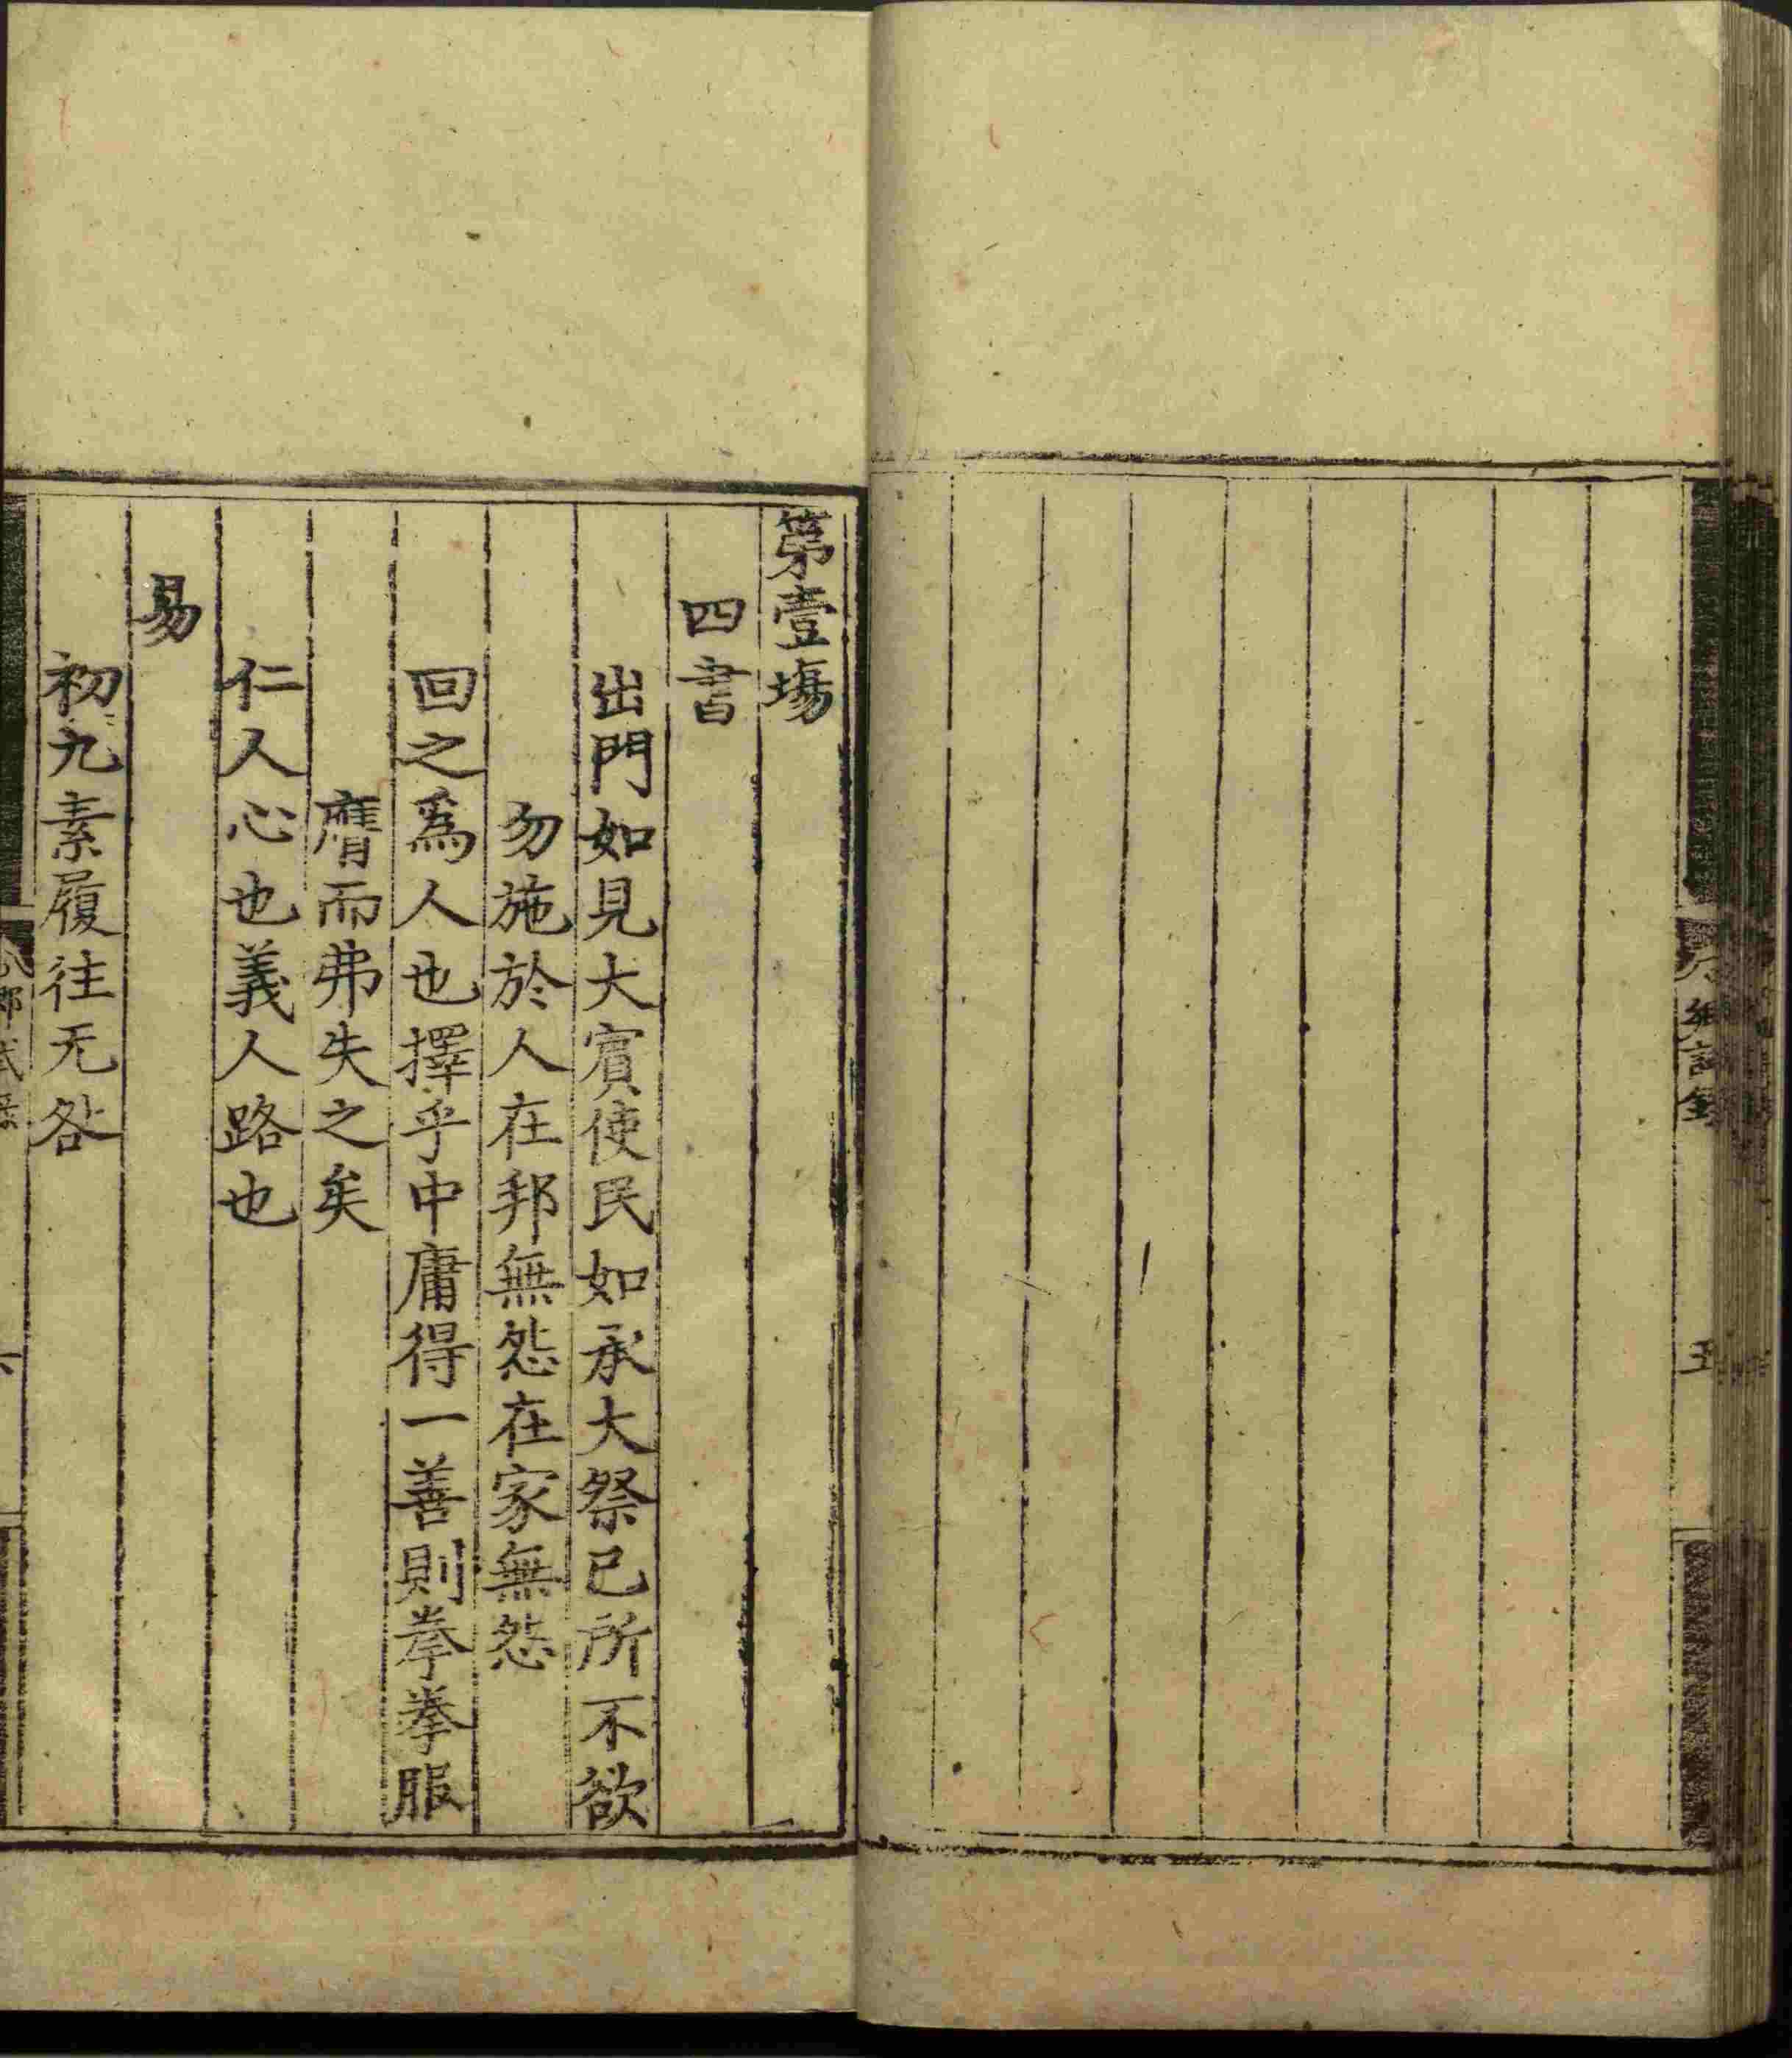 鄉試錄
五
第壹場
四書
出門如見大賓使民如承大祭己所不欲
勿施於人在邦無怨在家無怨
回之爲人也擇乎中庸得一善則拳拳服
膺而弗失之矣
仁人心也義人路也
易
初九素履往无咎